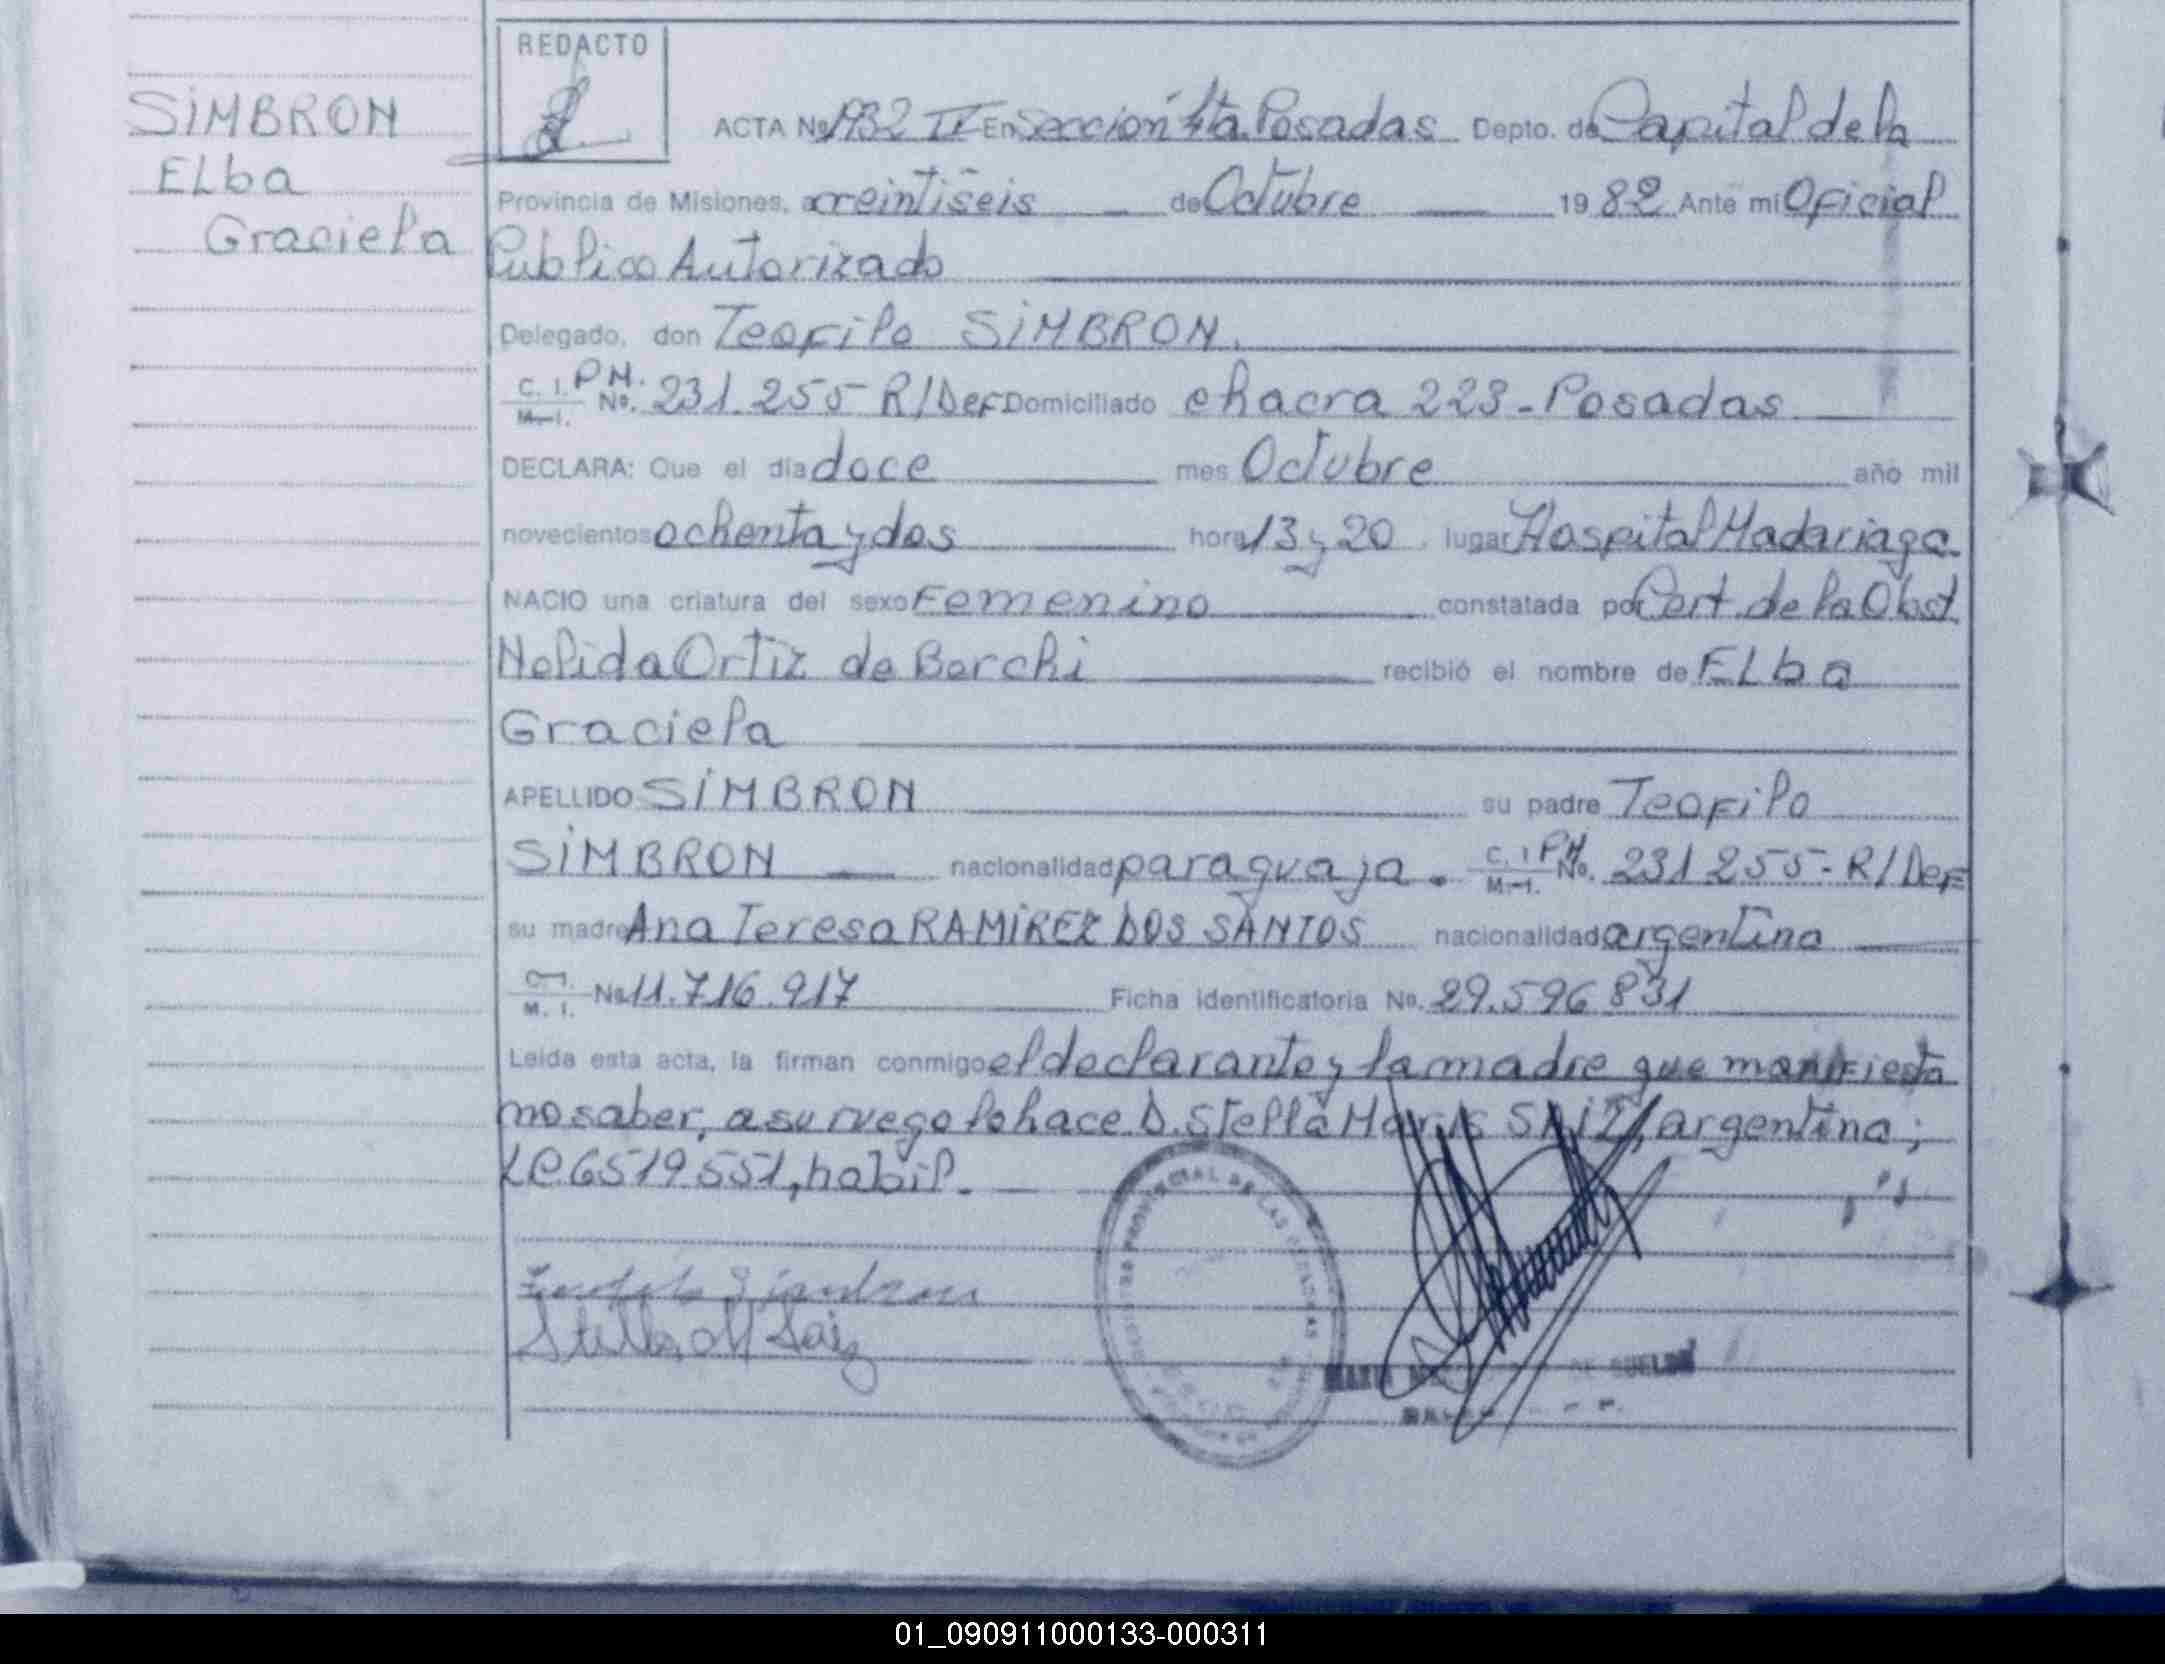 REDACTO
SIMBRON
Elba
Graciela
ACTA Nº 1932 IV En Sección 4ta. Posadas Depto. de Capital de la
Provincia de Misiones, a veintiseis de Octubre 1982 Ante mi Oficial
Publico Autorizado
Delegado, don Teofilo SIMBRON.
C. I. PN. No. 231.255 R/Def Domiciliado chacra 223 - Posadas
M. I.
DECLARA: Que el día doce mes Octubre año mil
novecientos ochenta y dos hora 13 y 20 lugar Hospital Madariaga.
NACIO una criatura del sexo Femenino constatada por Cert. de la Obst
Nelida Ortiz de Borchi recibió el nombre de Elba
Graciela
APELLIDO SIMBRON su padre Teofilo
SIMBRON nacionalidad paraguaja. C. I PN No. 231255 - R/Def
M. I.
su madre Ana Teresa RAMIREZ DOS SANTOS nacionalidad argentina
C. I.
M. I. No 11.716.917 Ficha identificatoria No. 29.596831
Leída esta acta, la firman conmigo el declarante y la madre que manifiesta
no saber, a su ruego lo hace D. Stella Maris SAIZ, argentina;
LC 6519551, habil.
Stella M Saiz
PROVINCIAL DE LAS PERSONAS
MARIA DE
01_090911000133-000311